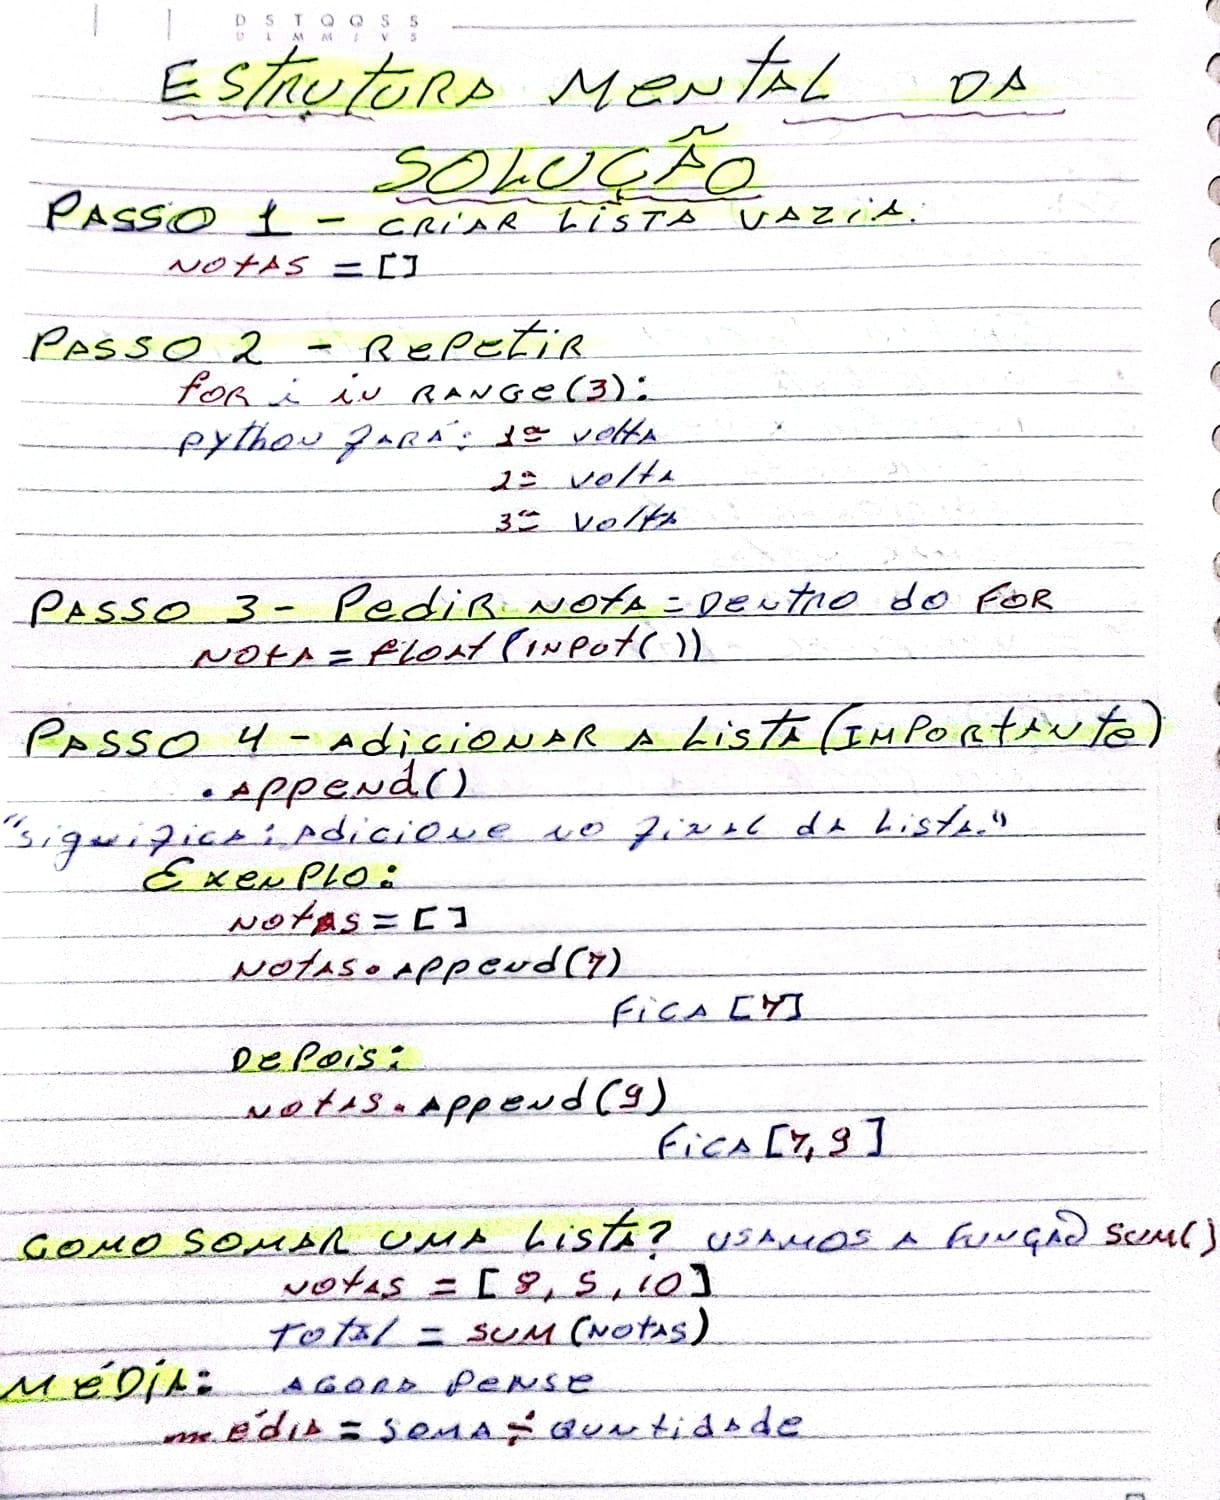 D S T Q Q S S
D L M M J V S
ESTRUTURA MENTAL DA
SOLUÇÃO
PASSO 1 - CRIAR LISTA VAZIA.
NOTAS = []
PASSO 2 - REPETIR
for i in RANGE(3):
python fARÁ: 1ª volta
2ª volta
3ª volta
PASSO 3 - Pedir NOTA = DENTRO do FOR
NOTA = float(INPUT())
PASSO 4 - AdicIONAR A LISTA (IMPORTANTE)
.APPENd()
"significa: Adicione no final da Lista."
EXENPLO:
NOTAS = []
NOTAS.APPend(7)
FICA [7]
DEPOIS:
NOTAS.APPENd(9)
FICA [7, 9]
COMO SOMAR UMA LISTA? USAMOS A FUNÇÃO SUM()
NOTAS = [8, 5, 10]
TOTAL = SUM (NOTAS)
MÉDIA: AGORA PENSE
média = SOMA ÷ QUNtidade